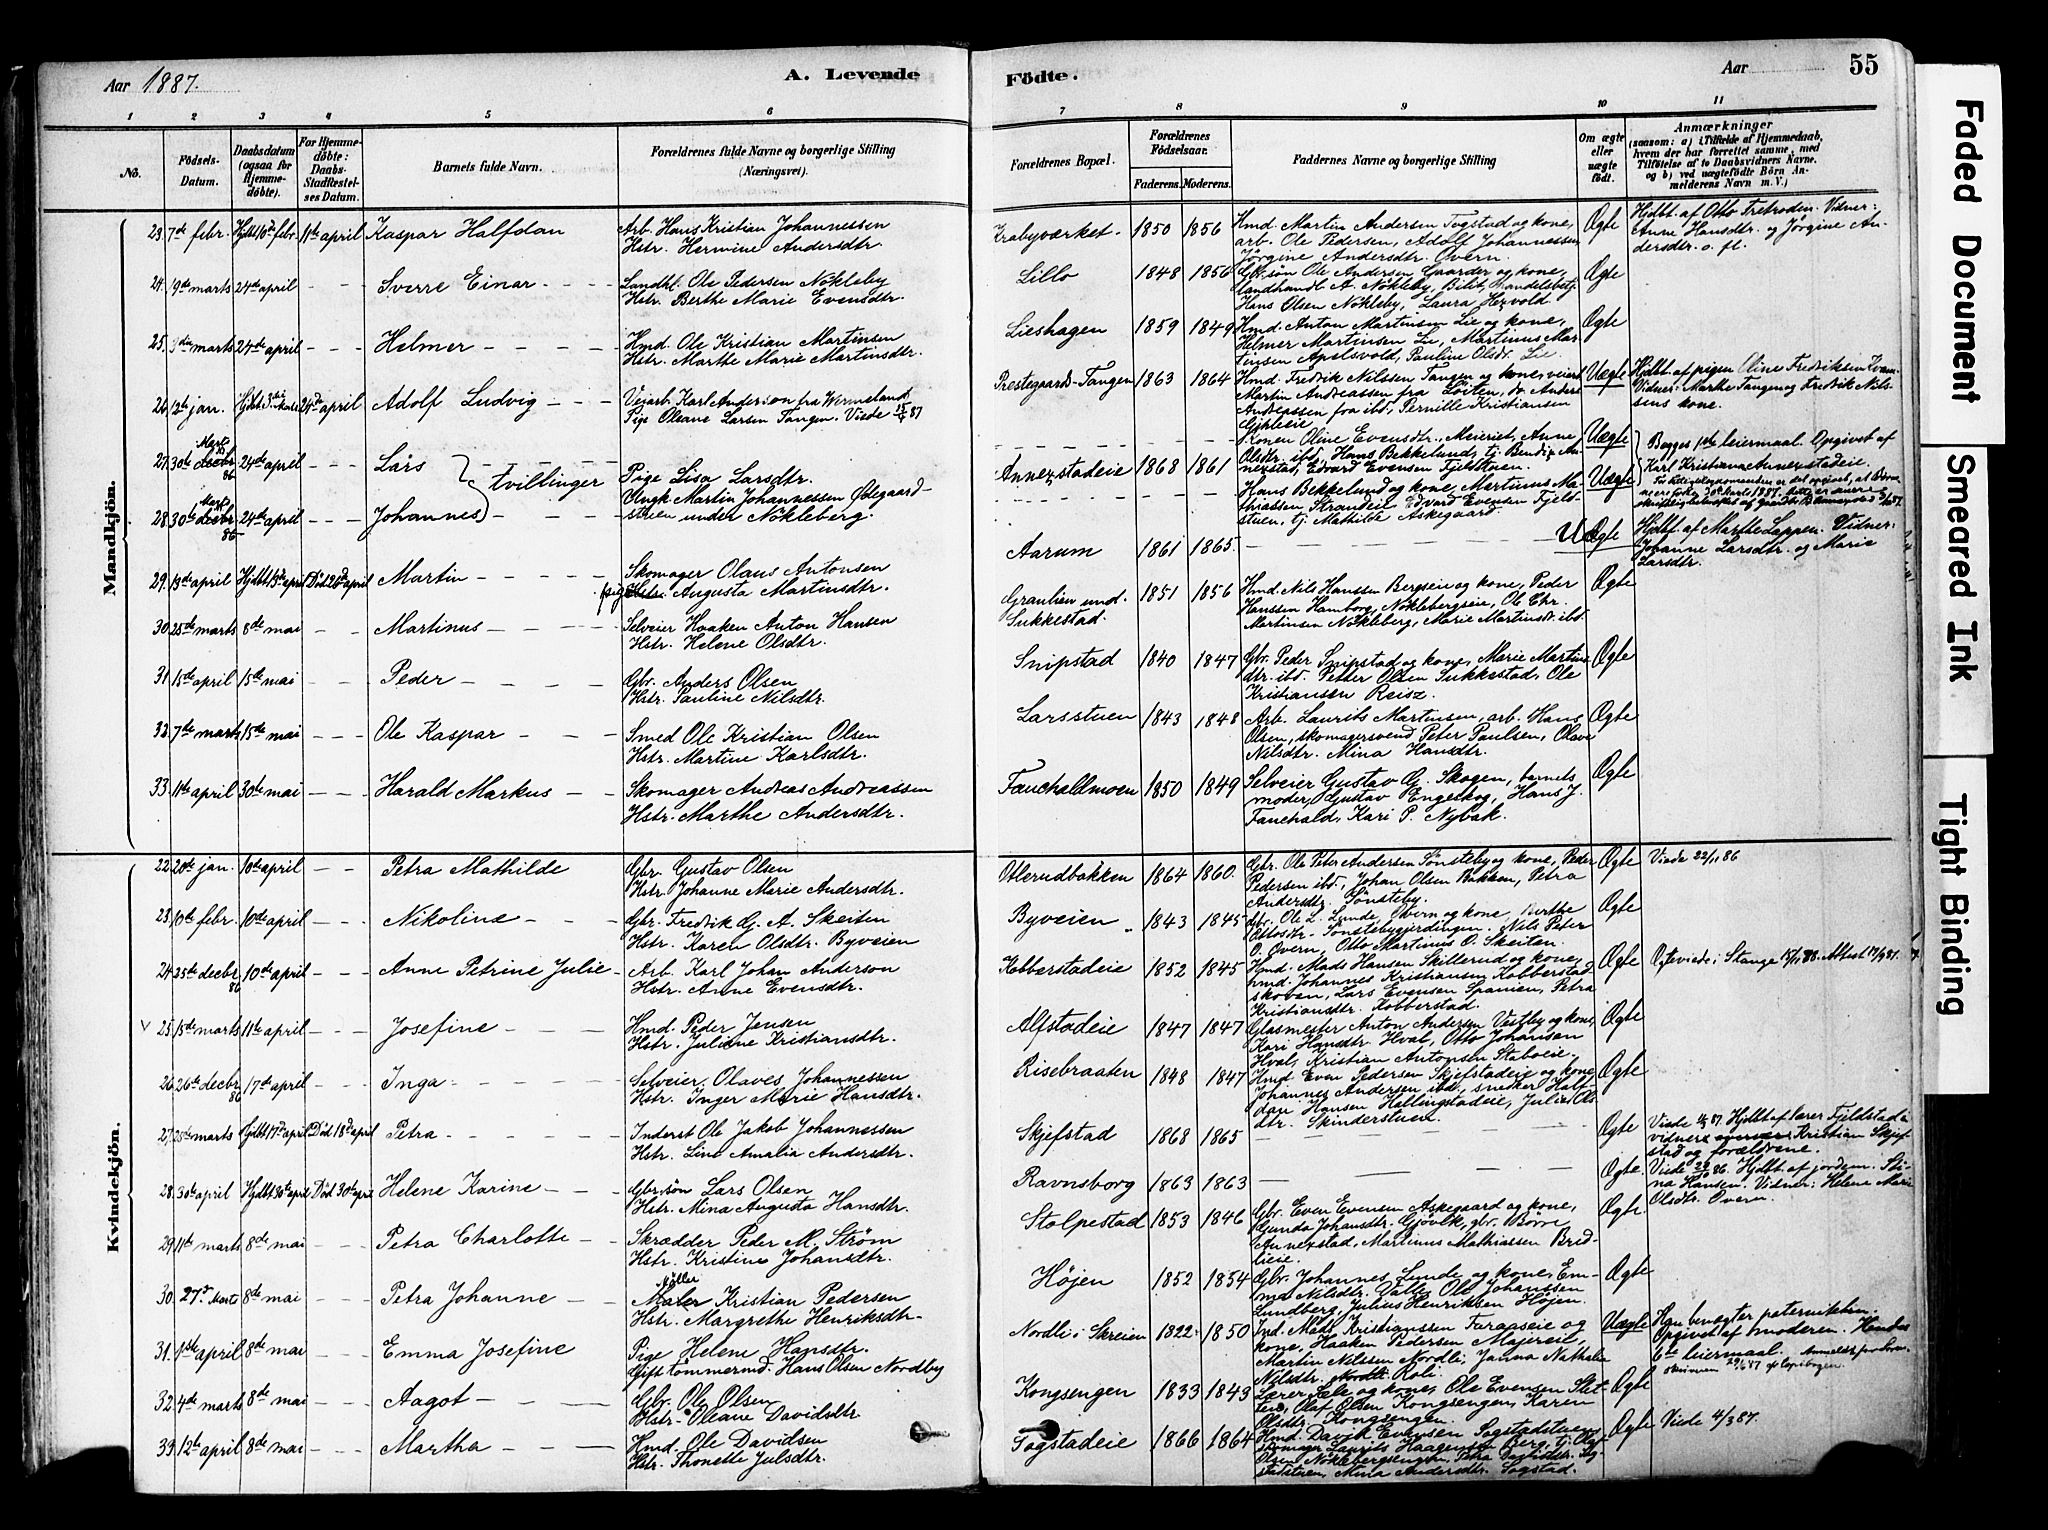 Aar 1887.
A. Levende
Födte.
Aar
55
1 2 3 4 5 6
7 8 9 10 11
No.
Födsels-
Datum.
Daabsdatum
(ogsaa for
Hjemme-
döbte).
For Hjemme-
döbte:
Daabs-
Stadfæstel-
ses Datum.
Barnets fulde Navn.
Forældrenes fulde Navne og borgerlige Stilling
(Næringsvei).
Forældrenes Bopæl.
Forældrenes
Födselsaar.
Faderens. Moderens.
Faddernes Navne og borgerlige Stilling
Om ægte
eller
uægte
födt.
Anmærkninger
(saasom: a) i Tilfælde af Hjemmedaab,
hvem der har forrettet samme, med
Tilföielse af to Daabsvidners Navne,
og b) ved uægtefödte Börn An-
melderens Navn m. V.)
Mandkjön.
23. 7de febr. Hjdbt 10de febr. 11te april Kaspar Halfdan
Arb. Hans Kristian Johannessen
Hstr. Hermine Andersdtr.
Krabyværket. 1850 1856
Hmd. Martin Andersen Togstad og kone,
arb. Ole Pedersen, Adolf Johannessen,
Jörgine Andersdtr. Overn.
Ægte
Hjdbt. af Otto Fretroden. Vidner:
Anne Hansdtr. og Jörgine An-
dersdtr. o. fl.
24. 19de marts 24de april - - - Sverre Einar - - -
Landhl. Ole Pedersen Nökleby
Hstr. Berthe Marie Evensdtr.
Lillo 1848 1856
Gbr.sön Ole Andersen Gaarder og kone,
landhandl. A. Nökleby, Bilit, handelsbetj.
Hans Olsen Nökleby, Laura Hexvold
Ægte
25. 9de marts 24de april - - - Helmer - - - -
Hmd. Ole Kristian Martinsen
Hstr. Marthe Marie Martinsdtr.
Lieshagen 1859 1849
Hmd. Anton Martinsen Lie og kone,
Helmer Martinsen Lie, Martinus Mar-
tinsen Apelsvold, Pauline Olsdr. Lie
Ægte
26. 12te jan. Hjdbt. 24de april Adolf Ludvig - - -
Veiarb. Karl Anderson fra Wermeland
Pige Oleane Larsen Tangen. Viede
Prestegaards-Tangen 1863 1864
Hmd. Fredrik Nilssen Tangen og kone, veiarb.
Martin Andreassen fra Löiten, do. Anders
Andreassen fra ibd., Pernille Kristiansen
Uægte
Hjdbt. af pigen Oline Fredriksen
Vidner: Marthe Tangen og Fredrik Nils-
sens kone.
27. 30te Marts decbr 86 24de april - - - Lars - - - -
tvillinger
Pige Lisa Larsdtr.
Ungk. Martin Johannessen Ödegaard-
stuen under Nökleberg.
Annexstadeie 1868 1861
Konen Oline Evensdtr., Meieriet, Anne
Olsdtr. ibd., Hans Bekkelund, tj. Bendik An-
nexstad, Edvard Evensen Fjeldstuen.
Uægte
Begges 1ste leiermaal. Opgivet af
Karl Kristian Annexstadeie.
28. 30te Marts decbr 86 24de april - - - Johannes
Hans Bekkelund og kone, Martinus Ma-
thiassen Strandeie, Edvard Evensen Fjeld-
stuen, tj. Mathilde Askegaard
Uægte
29. 13de april Hjdbt 13de april Död 20de april Martin - - - -
Skomager Olaus Antonsen
pige Hstr. Augusta Martinsdtr.
Aarum 1861 1865.
UÆgte
Hjdbt. af Marthe Lappen. Vidner:
Johanne Larsdtr. og Marie
Larsdtr.
30. 25de marts 8de mai - - Martinus - - - -
Selveier Haaken Anton Hansen
Hstr. Helene Olsdtr.
Granlien und.
Sukkestad. 1851 1856
Hmd. Nils Hanssen Bergseie og kone, Peder
Hanssen Hamborg, Nöklebergseie, Ole Chr.
Martinsen Nökleberg, Marie Martinsdr. ibd.
Ægte
31. 15de april 15de mai - - - Peder - - - -
Gbr. Anders Olsen
Hstr. Pauline Nilsdtr.
Snipstad 1840 1847
Gbr. Peder Snipstad og kone, Marie Martins-
dtr. ibd. Petter Olsen Sukkestad, Ole
Kristiansen Reisz.
Ægte
32. 7de marts 15de mai - - - Ole Kaspar - - -
Smed Ole Kristian Olsen
Hstr. Martine Karlsdtr.
Larsstuen 1843 1848
Arb. Laurits Martinsen, arb. Hans
Olsen, skomagersvend Peter Paulsen, Olave
Nilsdtr. Mina Hansdtr.
Ægte
33. 11te april 30te mai - - - Harald Markus - -
Skomager Andreas Andreassen
Hstr. Marthe Andersdtr.
Fauchaldmoen 1850 1849
Selveier Gustav G. Skogen, barnets
moder, Gustav Engeskog, Hans J.
Fauchald, Kari P. Nybak.
Ægte
Kvindekjön.
22. 20de jan. 10de april - - Petra Mathilde
Gbr. Gustav Olsen
Hstr. Johanne Marie Andersdtr.
Otterudbakken 1864 1860.
Gbr. Ole Peter Andersen Sönsteby og kone, Peder
Pedersen ibd., Johan Olsen Bakken, Petra
Andersdtr. Sönsteby.
Ægte
Viede 22/11 86
23. 10de febr. 10de april - - - Nikoline - - -
Gbr. Fredrik G. A. Skeiten
Hstr. Karen Olsdtr. Byveien
Byveien 1843 1845
Gbr. Ole L. Lunde, Overn og kone, Berthe
Ottosdtr. Sönstebygjerdingen. Nils Peter
O. Overn, Otto Martinus O. Skeiten.
Ægte
24. 25de decbr 86 10de april - - - Anne Petrine Julie -
Arb. Karl Johan Anderson
Hstr. Anne Evensdtr.
Kobberstadeie 1852 1845
Hmd. Mads Hansen Skillerud og kone,
hmd. Johannes Kristiansen Kobberstad-
skoven, Lars Evensen Spanien, Petra
Kristiansdtr. Kobberstad.
Ægte
Ægteviede i Stange
25. 15de marts 11te april - - - Josefine - - -
Hmd. Peder Jensen
Hstr. Juliane Kristiansdtr.
Alfstadeie 1847 1847
Glasmester Anton Andersen Vestby og kone,
Kari Hansdtr. Hval, Otto Johansen
Hval, Kristian Antonsen Staboeie.
Ægte
26. 26de decbr 86 17de april - - - Inga - - - -
Selveier Olaves Johannessen
Hstr. Inger Marie Hansdtr.
Risebraaten 1848 1847
Hmd. Even Pedersen Skjefstadeie og kone
Johannes Andersen ibd., snedker Half-
dan Hansen Hallingstadeie, Julie Ols-
dtr. Skinderstuen.
Ægte
27. 25de marts Hjdbt 17de april Död 18de april Petra - - - -
Inderst Ole Jakob Johannessen
Hstr. Line Amalia Andersdtr.
Skjefstad 1868 1865
Ægte
Hjdbt af lærer Fjeldstad
vidner Kristian Skjef-
stad og forældrene.
28. 30te april Hjdbt 30te april Död 30te april Helene Karine - -
Gbr.sön Lars Olsen
Hstr. Mina Augusta Hansdtr.
Ravnsborg 1863 1863
Ægte.
Hjdbt. af jordem. Sti-
na Hansen. Vidner: Helene Marie
Olsdtr. Overn.
29. 11te marts 8de mai - - - Petra Charlotte - -
Skrædder Peder M. Ström
Hstr. Kristine Johansdtr.
Stolpestad 1853 1846
Gbr. Even Evensen Askegaard og kone,
Gunda Johansdtr. Gjövik, gbr. Börre
Annexstad, Martinus Mathiassen Bred-
lieie.
Ægte.
30. 27de Marts 8de mai - - - Petra Johanne - -
Möller
Maler Kristian Pedersen
Hstr. Margrethe Henriksdtr.
Höjen 1852 1854
Gbr. Johannes Lunde og kone, Em-
ma Nilsdtr. Valle, Ole Johansen
Lundberg, Julius Henriksen Höjen.
Ægte
31. 1ste april 8de mai - - - Emma Josefine
Pige Helene Hansdtr.
Gift tömmermd. Hans Olsen Nordby
Nordli i Skreien 1822 1850
Ind. Mads Kristianssen Faraaseie og
kone, Haaken Pedersen Majereie,
Martin Nilssen Nordli, Janna Nathalie
Nilsdtr. Roli.
Uægte
Han benegter paterniteten.
Opgivet af moderen. Hendes
6te leiermaal.
32. 4de marts 8de mai - - - Aagot - - -
Gbr. Ole Olsen
Hstr. Oleane Davidsdtr
Kongsengen 1833 1843
Lærer Sæle og kone, Ole Evensen Stet-
ten, Olaf Olsen Kongsengen, Karen
Olsdtr. Kongsengen.
Ægte
33. 12te april 8de mai - - - Martha - - -
Hmd. Ole Davidsen
Hstr. Thonette Julsdtr.
Sogstadeie 1866 1864
Hmd. David Evensen Sogstadstuen
skomager Laurits Haagensen Berg, tj. Olaf
Olsen Nöklebergsengen, Petra Davidsdtr. Sog-
stadstuen, Mina Andersdtr. Sogstad.
Ægte
Viede 4/3 87.
Faded Document
Smeared Ink
Tight Binding